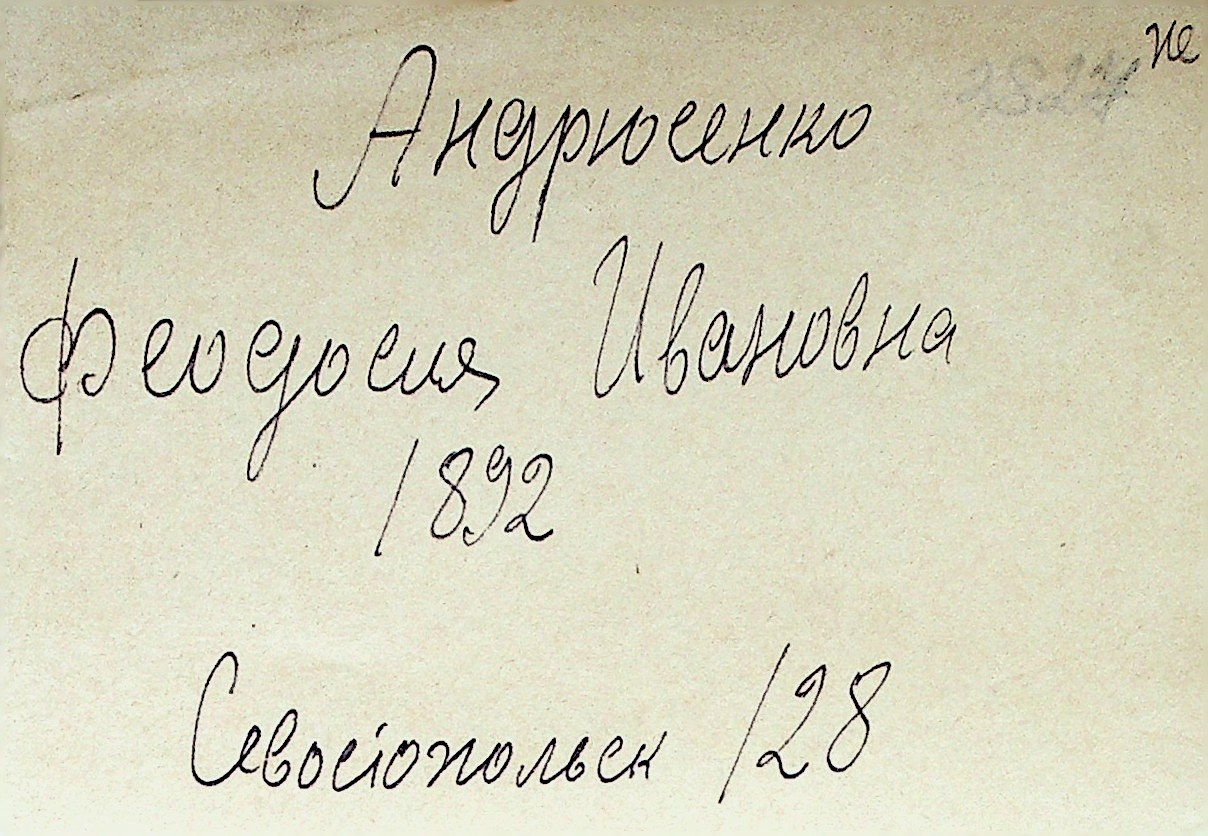 не
2827
Андрюсенко
Феодосия Ивановна
1892
Севостопольск 128